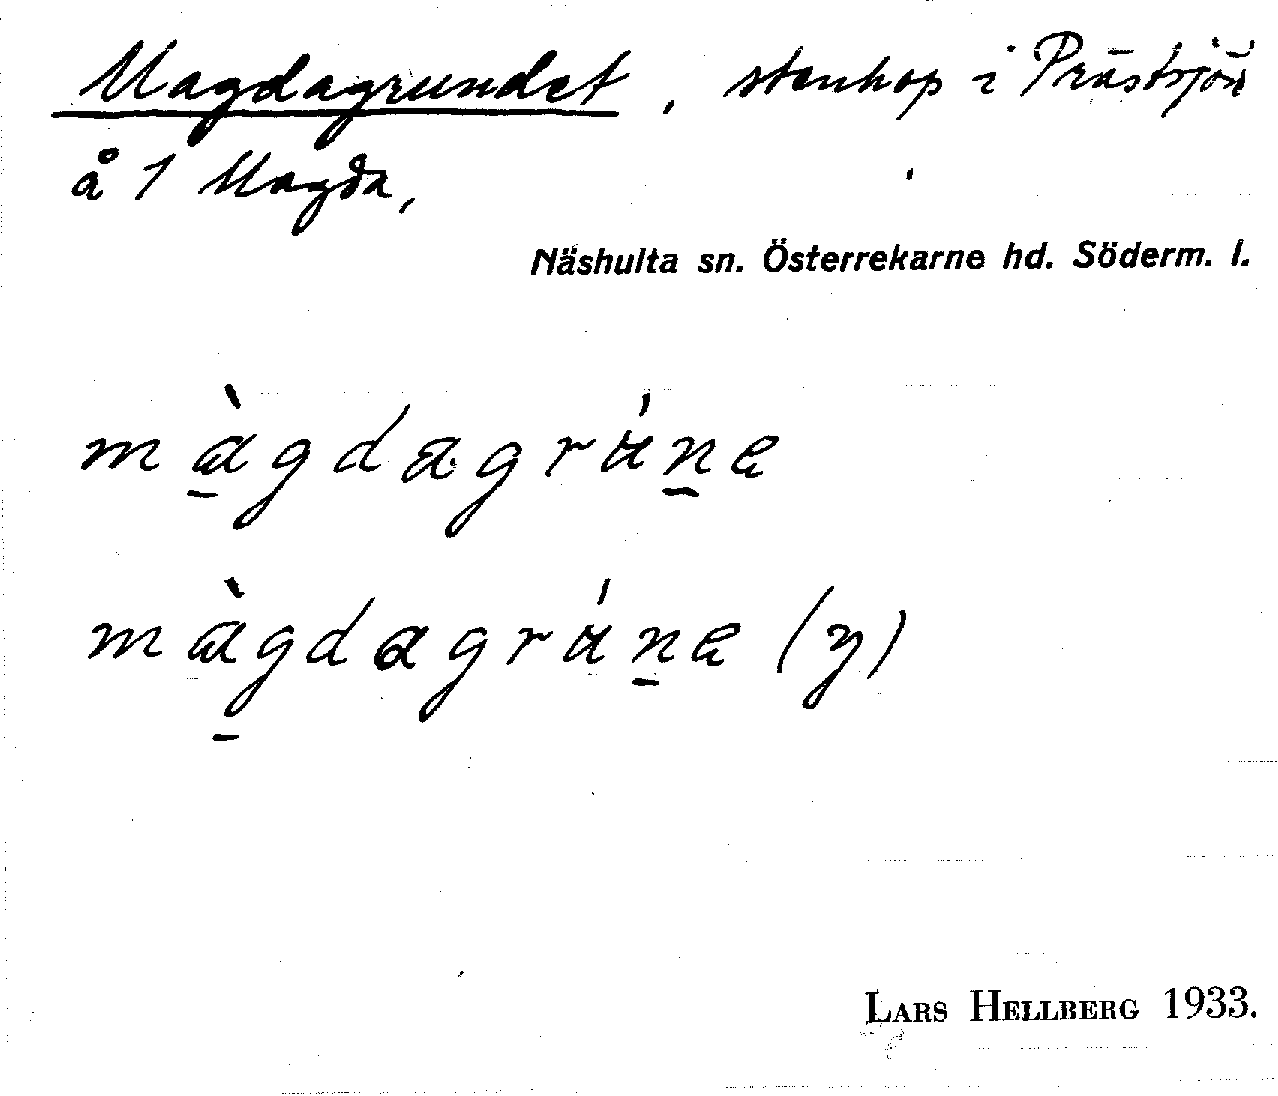 Magdagrundet, stenhop i Prästsjön
å 1 Magda,
Näshulta sn. Österrekarne hd. Söderm. l.
màgdagrúne
màgdagrúne (y)
LARS HELLBERG 1933.